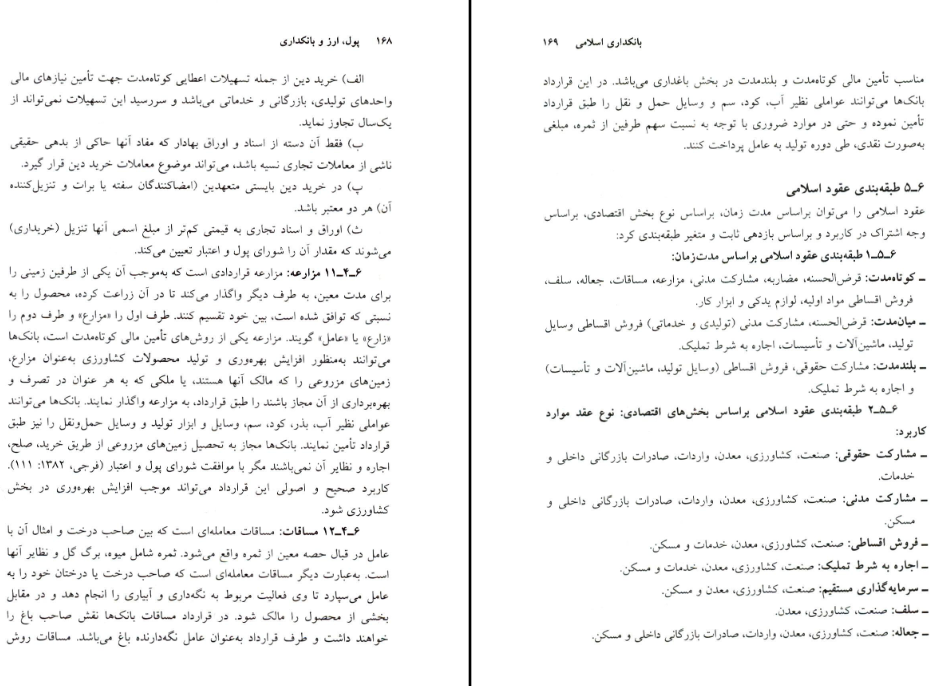 ۱۶۸ پول، ارز و بانکداری
الف) خرید دین از جمله تسهیلات اعطایی کوتاه‌مدت جهت تأمین نیازهای مالی
واحدهای تولیدی، بازرگانی و خدماتی می‌باشد و سررسید این تسهیلات نمی‌تواند از
یک‌سال تجاوز نماید.
ب) فقط آن دسته از اسناد و اوراق بهادار که مفاد آنها حاکی از بدهی حقیقی
ناشی از معاملات تجاری نسیه باشد، می‌تواند موضوع معاملات خرید دین قرار گیرد.
پ) در خرید دین بایستی متعهدین (امضاکنندگان سفته یا برات و تنزیل‌کننده
آن) هر دو معتبر باشد.
ث) اوراق و اسناد تجاری به قیمتی کم‌تر از مبلغ اسمی آنها تنزیل (خریداری)
می‌شوند که مقدار آن را شورای پول و اعتبار تعیین می‌کند.
۶ـ۴ـ۱۱ مزارعه: مزارعه قراردادی است که به‌موجب آن یکی از طرفین زمینی را
برای مدت معین، به طرف دیگر واگذار می‌کند تا در آن زراعت کرده، محصول را به
نسبتی که توافق شده است، بین خود تقسیم کنند. طرف اول را «مزارع» و طرف دوم را
«زارع» یا «عامل» گویند. مزارعه یکی از روش‌های تأمین مالی کوتاه‌مدت است، بانک‌ها
می‌توانند به‌منظور افزایش بهره‌وری و تولید محصولات کشاورزی به‌عنوان مزارع،
زمین‌های مزروعی را که مالک آنها هستند، یا ملکی که به هر عنوان در تصرف و
بهره‌برداری از آن مجاز باشند را طبق قرارداد، به مزارعه واگذار نمایند. بانک‌ها می‌توانند
عواملی نظیر آب، بذر، کود، سم، وسایل و ابزار تولید و وسایل حمل‌ونقل را نیز طبق
قرارداد تأمین نمایند. بانک‌ها مجاز به تحصیل زمین‌های مزروعی از طریق خرید، صلح،
اجاره و نظایر آن نمی‌باشند مگر با موافقت شورای پول و اعتبار (فرجی، ۱۳۸۲: ۱۱۱).
کاربرد صحیح و اصولی این قرارداد می‌تواند موجب افزایش بهره‌وری در بخش
کشاورزی شود.
۶ـ۴ـ۱۲ مساقات: مساقات معامله‌ای است که بین صاحب درخت و امثال آن با
عامل در قبال حصه معین از ثمره واقع می‌شود. ثمره شامل میوه، برگ گل و نظایر آنها
است. به‌عبارت دیگر مساقات معامله‌ای است که صاحب درخت یا درختان خود را به
عامل می‌سپارد تا وی فعالیت مربوط به نگه‌داری و آبیاری را انجام دهد و در مقابل
بخشی از محصول را مالک شود. در قرارداد مساقات بانک‌ها نقش صاحب باغ را
خواهند داشت و طرف قرارداد به‌عنوان عامل نگه‌دارنده باغ می‌باشد. مساقات روش
بانکداری اسلامی ۱۶۹
مناسب تأمین مالی کوتاه‌مدت و بلندمدت در بخش باغداری می‌باشد. در این قرارداد
بانک‌ها می‌توانند عواملی نظیر آب، کود، سم و وسایل حمل و نقل را طبق قرارداد
تأمین نموده و حتی در موارد ضروری با توجه به نسبت سهم طرفین از ثمره، مبلغی
به‌صورت نقدی، طی دوره تولید به عامل پرداخت کنند.
۶ـ۵ طبقه‌بندی عقود اسلامی
عقود اسلامی را می‌توان براساس مدت زمان، براساس نوع بخش اقتصادی، براساس
وجه اشتراک در کاربرد و براساس بازدهی ثابت و متغیر طبقه‌بندی کرد:
۶ـ۵ـ۱ طبقه‌بندی عقود اسلامی براساس مدت‌زمان:
ـ کوتاه‌مدت: قرض‌الحسنه، مضاربه، مشارکت مدنی، مزارعه، مساقات، جعاله، سلف،
فروش اقساطی مواد اولیه، لوازم یدکی و ابزار کار.
ـ میان‌مدت: قرض‌الحسنه، مشارکت مدنی (تولیدی و خدماتی) فروش اقساطی وسایل
تولید، ماشین‌آلات و تأسیسات، اجاره به شرط تملیک.
ـ بلندمدت: مشارکت حقوقی، فروش اقساطی (وسایل تولید، ماشین‌آلات و تأسیسات)
و اجاره به شرط تملیک.
۶ـ۵ـ۲ طبقه‌بندی عقود اسلامی براساس بخش‌های اقتصادی: نوع عقد موارد
کاربرد:
ـ مشارکت حقوقی: صنعت، کشاورزی، معدن، واردات، صادرات بازرگانی داخلی و
خدمات.
ـ مشارکت مدنی: صنعت، کشاورزی، معدن، واردات، صادرات بازرگانی داخلی و
مسکن.
ـ فروش اقساطی: صنعت، کشاورزی، معدن، خدمات و مسکن.
ـ اجاره به شرط تملیک: صنعت، کشاورزی، معدن، خدمات و مسکن.
ـ سرمایه‌گذاری مستقیم: صنعت، کشاورزی، معدن و مسکن.
ـ سلف: صنعت، کشاورزی، معدن.
ـ جعاله: صنعت، کشاورزی، معدن، واردات، صادرات بازرگانی داخلی و مسکن.